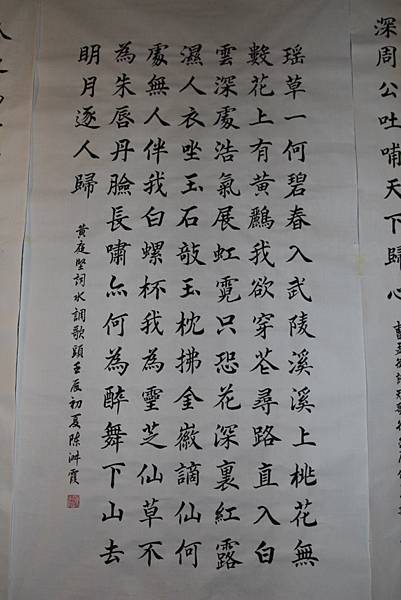 深周公吐哺天下歸心
瑤草一何碧春入武陵溪溪上桃花無
數花上有黃鸝我欲穿花尋路直入白
雲深處浩氣展虹霓只恐花深裏紅露
濕人衣坐玉石敲玉枕拂金徽謫仙何
處無人伴我白螺杯我為靈芝仙草不
為朱唇丹臉長嘯亦何為醉舞下山去
明月逐人歸
黃庭堅詞水調歌頭壬辰初夏陳淑霞